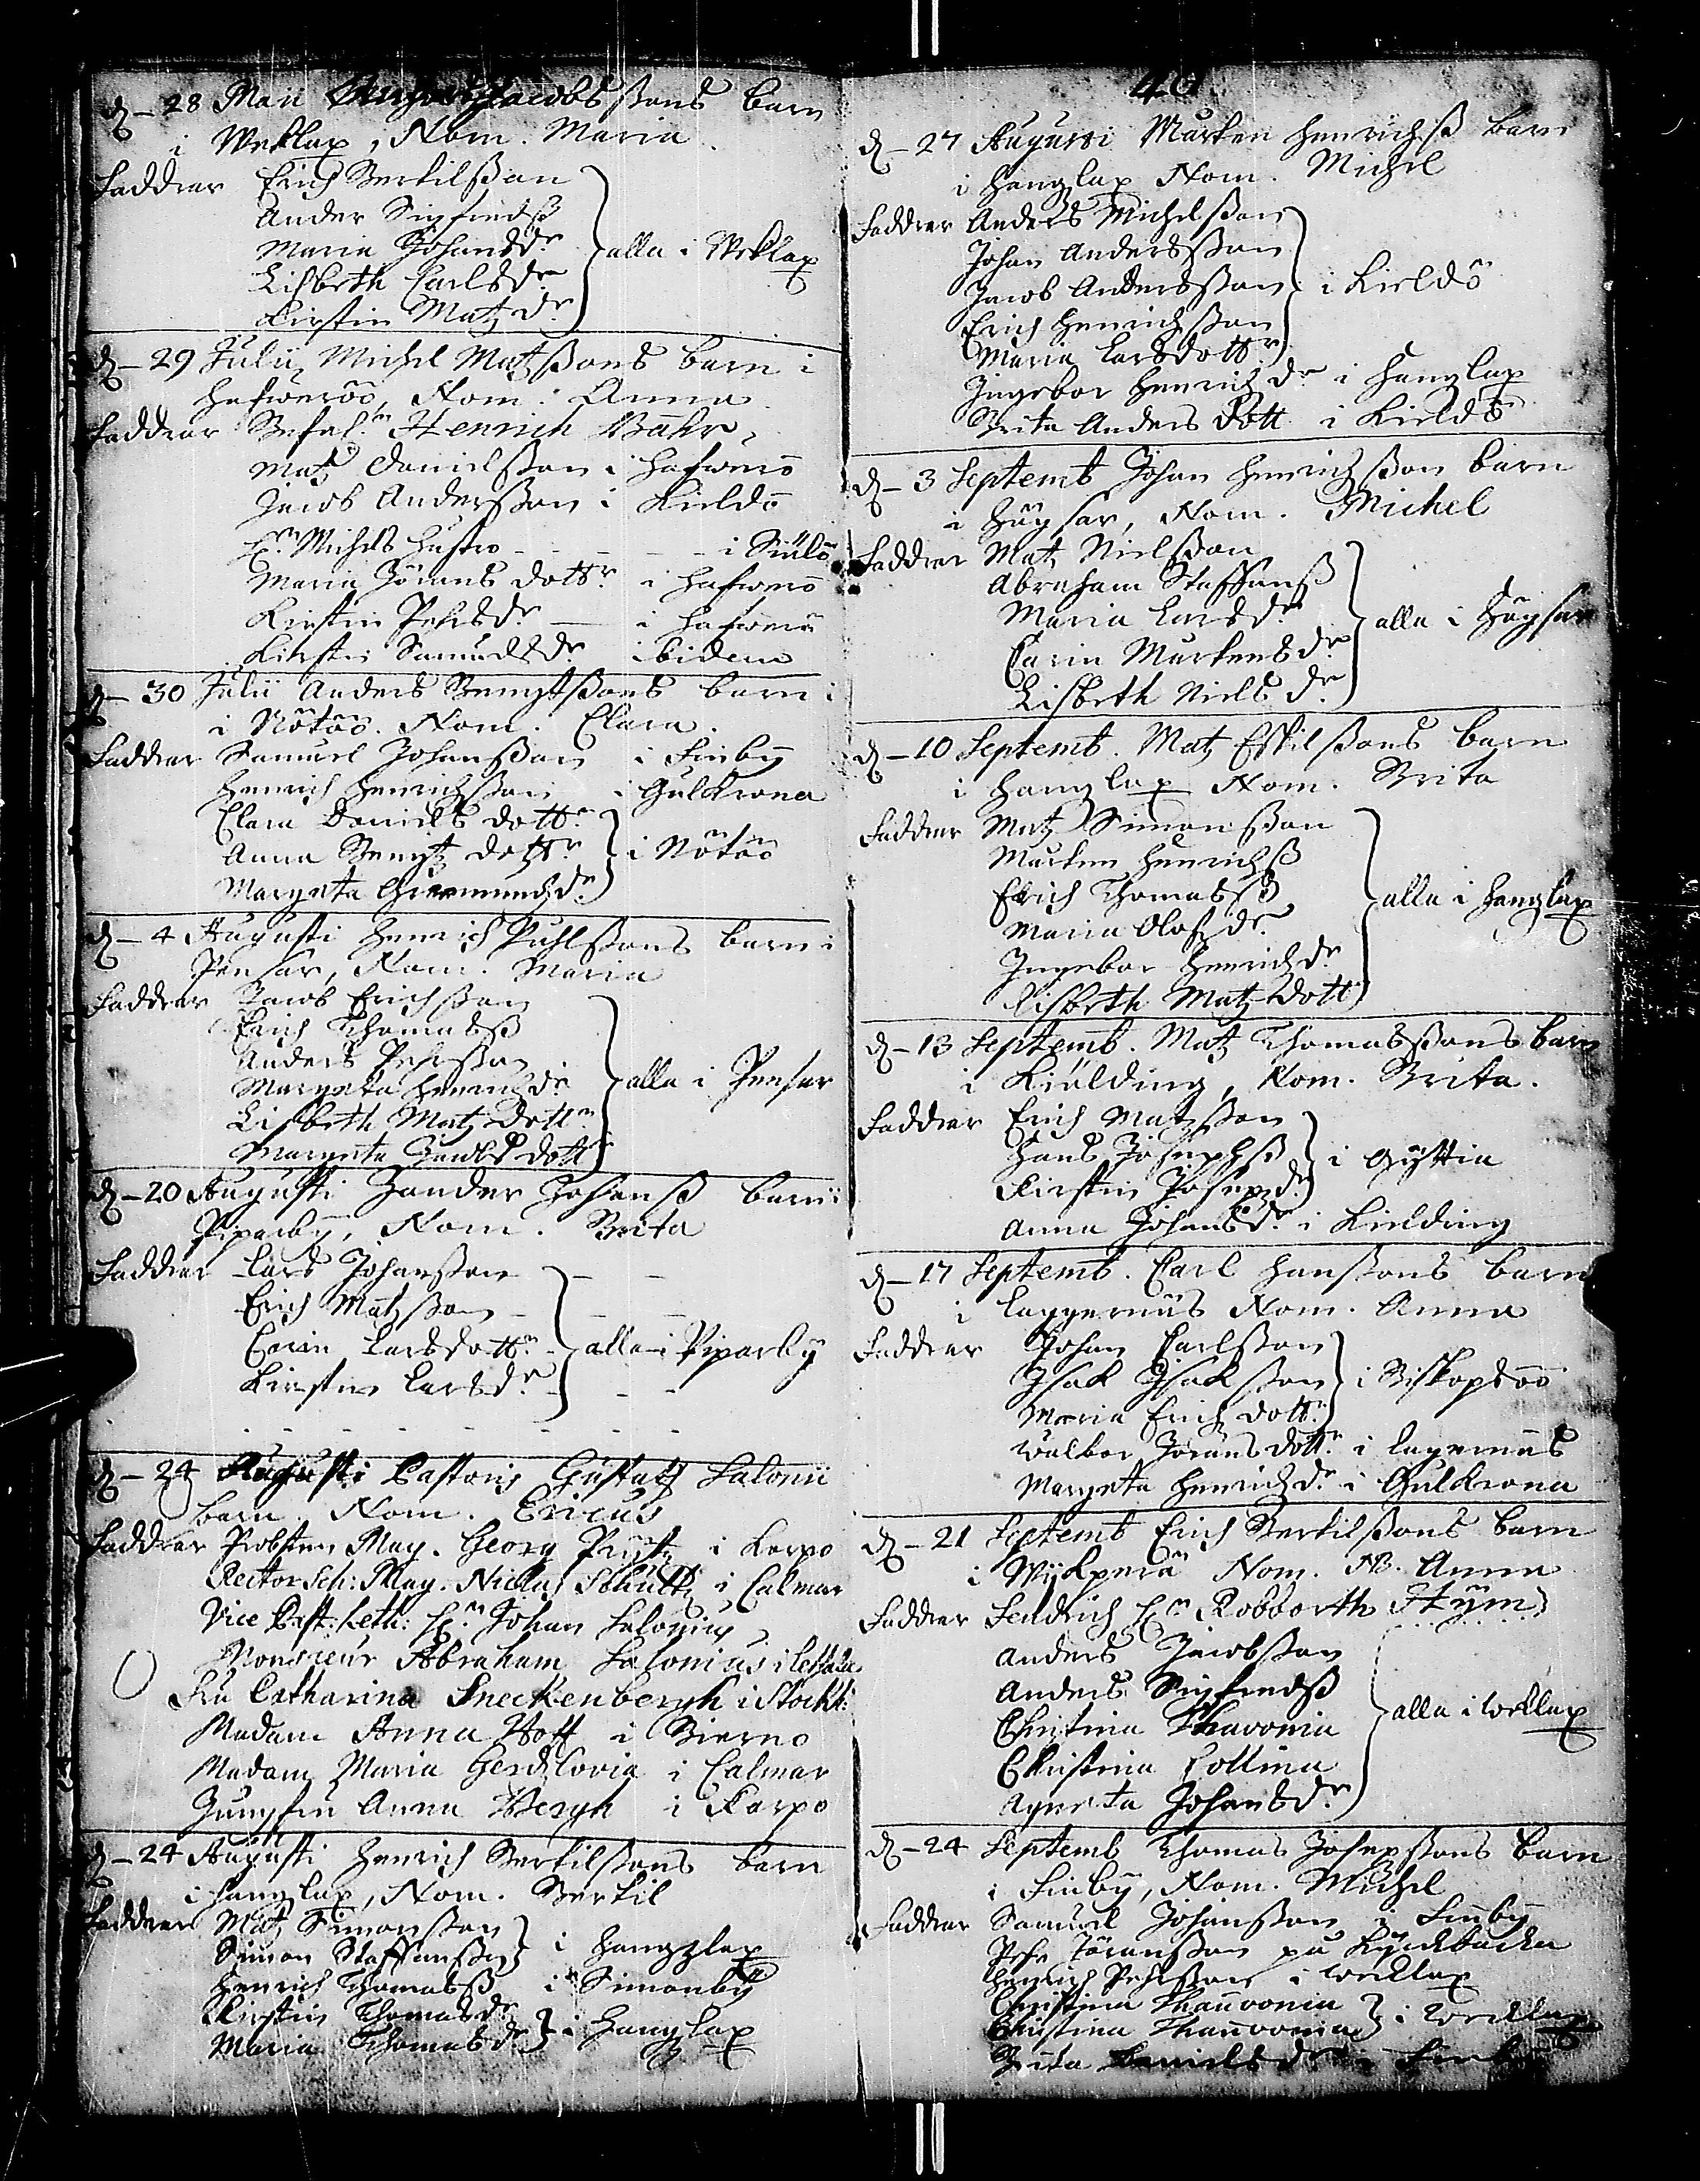 d. 28 Maii Jacobssons barn
i Weklax, Nom. Maria
faddrar Erich Bertilsson
Ander Sigfredss
Maria Johansdr
Lisbeth Carlsdr } alla i Weklax
Kirstin Matzdr
d. 29 Julii Michel Matzssons barn i
hafweröö, Nom. Anna
faddrar Befal. Henrich Bähr,
Matz Danielsson i hafwerö
Jacob Andersson i Kieldö
Hr Michels hustro - - - i
Maria Jörans dottr i hafwerö
Kirstin Pehrsdr — i hafwerö
Kirstin Samuelsdr ibidem
d. 30 Julii Anders Bengtssons barn i
i Nötöö. Nom. Clara.
faddrar Samuel Johansson i Finby
Henrich Henrichsson i Gulkrona
Clara Daniels dottr
Anna Bengtz dottr } i Nötöö
Margeta dr
d. 4 Augusti Henrich Påhlssons barn i
Pensar, Nom. Maria
faddrar Jacob Erichsson
Erich Thomass
Anders Pehrsson
Margeta Henrichdr } alla i Pensar
Lisbeth Matz dottr
Margeta Jacobs dottr
d. 20 Augusti Zander Johanss barn i
Piparby, Nom. Brita
faddrar Lars Johansson
Erich Matzson
Carin Larsdottr } alla i Piparby
Kirstin Larsdr
d. 24 Augusti Pastoris Gustafz Salonii
barn Nom. Ericus
faddrar Probsten Mag. Georg i Korpo
Rector Sch: Mag. Niclas Schultz i Calmar
Vice Past: Hr Johan Salonius
Monsieur Abraham Salonius i
Fru Catharina Sneckenbergh i Stockh:
Madam Anna Hoff i Bierno
Madam Maria Gerdslovia i Calmar
Jungfru Anna Bergh i Korpo
d. 24 Augusti Henrich Bertilssons barn
i hanglax, Nom. Bertil
faddrar Matz Simonsson
Simon Staffansson } i hangzlax
Henrich Thomass i Simonby
Kirstin Thomasdr
Maria Thomasdr } i hanglax
40
d. 27 Augusti Marten Henrichss barn
i hanglax Nom. Michel
faddrar Anders Michelsson
Johan Andersson
Jacob Andersson } i Kieldö
Erich Henrichsson
Maria Larsdottr
Ingebor Henrichdr i hanglax
Brita Anders dott i Kieldö
d. 3 Septemb Johan Henrichsson barn
i Högsar, Nom. Michel
faddrar Matz Nielsson
Abraham Staffanss
Maria Larsdr } alla i Högsar
Carin Martensdr
Lisbeth Niels dr
d. 10 Septemb. Matz Eskilssons barn
i hanglax Nom. Brita
faddrar Matz Simonsson
Marten Henrichss
Erich Thomass
Maria Olofzdr } alla i hanglax
Ingebor Henrichdr
Lisbeth Matz dott
d. 13 Septemb. Matz Thomassons barn
i Kiälding, Nom. Brita.
faddrar Erich Matzson
Hans Josephss } i Gyttia
Kirstin Josepzdr
Anna Johansdr i Kielding
d. 17 Septemb. Carl Hanssons barn
i Nom. Anna
faddrar Johan Carlsson
Isak Isaksson } i Biskopsöö
Maria Erich dottr
Walbor Jörans dottr i
Margeta Henrichdr i Gulkrona
d. 21 Septemb Erich Bertilssons barn
i Nom. NB. Anna
faddrar Fendrich Hr Robborth
Anders Jacobsson
Anders Sigfredss
Christina Thavonia } alla i Weklax
Christina Collina
Agneta Johansdr
d. 24 Septemb Thomas Josepssons barn
i Finby, Nom. Michel
faddrar Samuel Johansson i Finby
Pehr Jöransson på
Henrich Pehrsson i Wecklax
Christina Thauvonia
Christina Thauvonia } i Wecklax
Brita Danielsdr i Finby